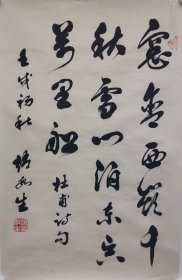 窗含西岭千
秋雪门泊东吴
万里船 杜甫诗句
壬戌初秋